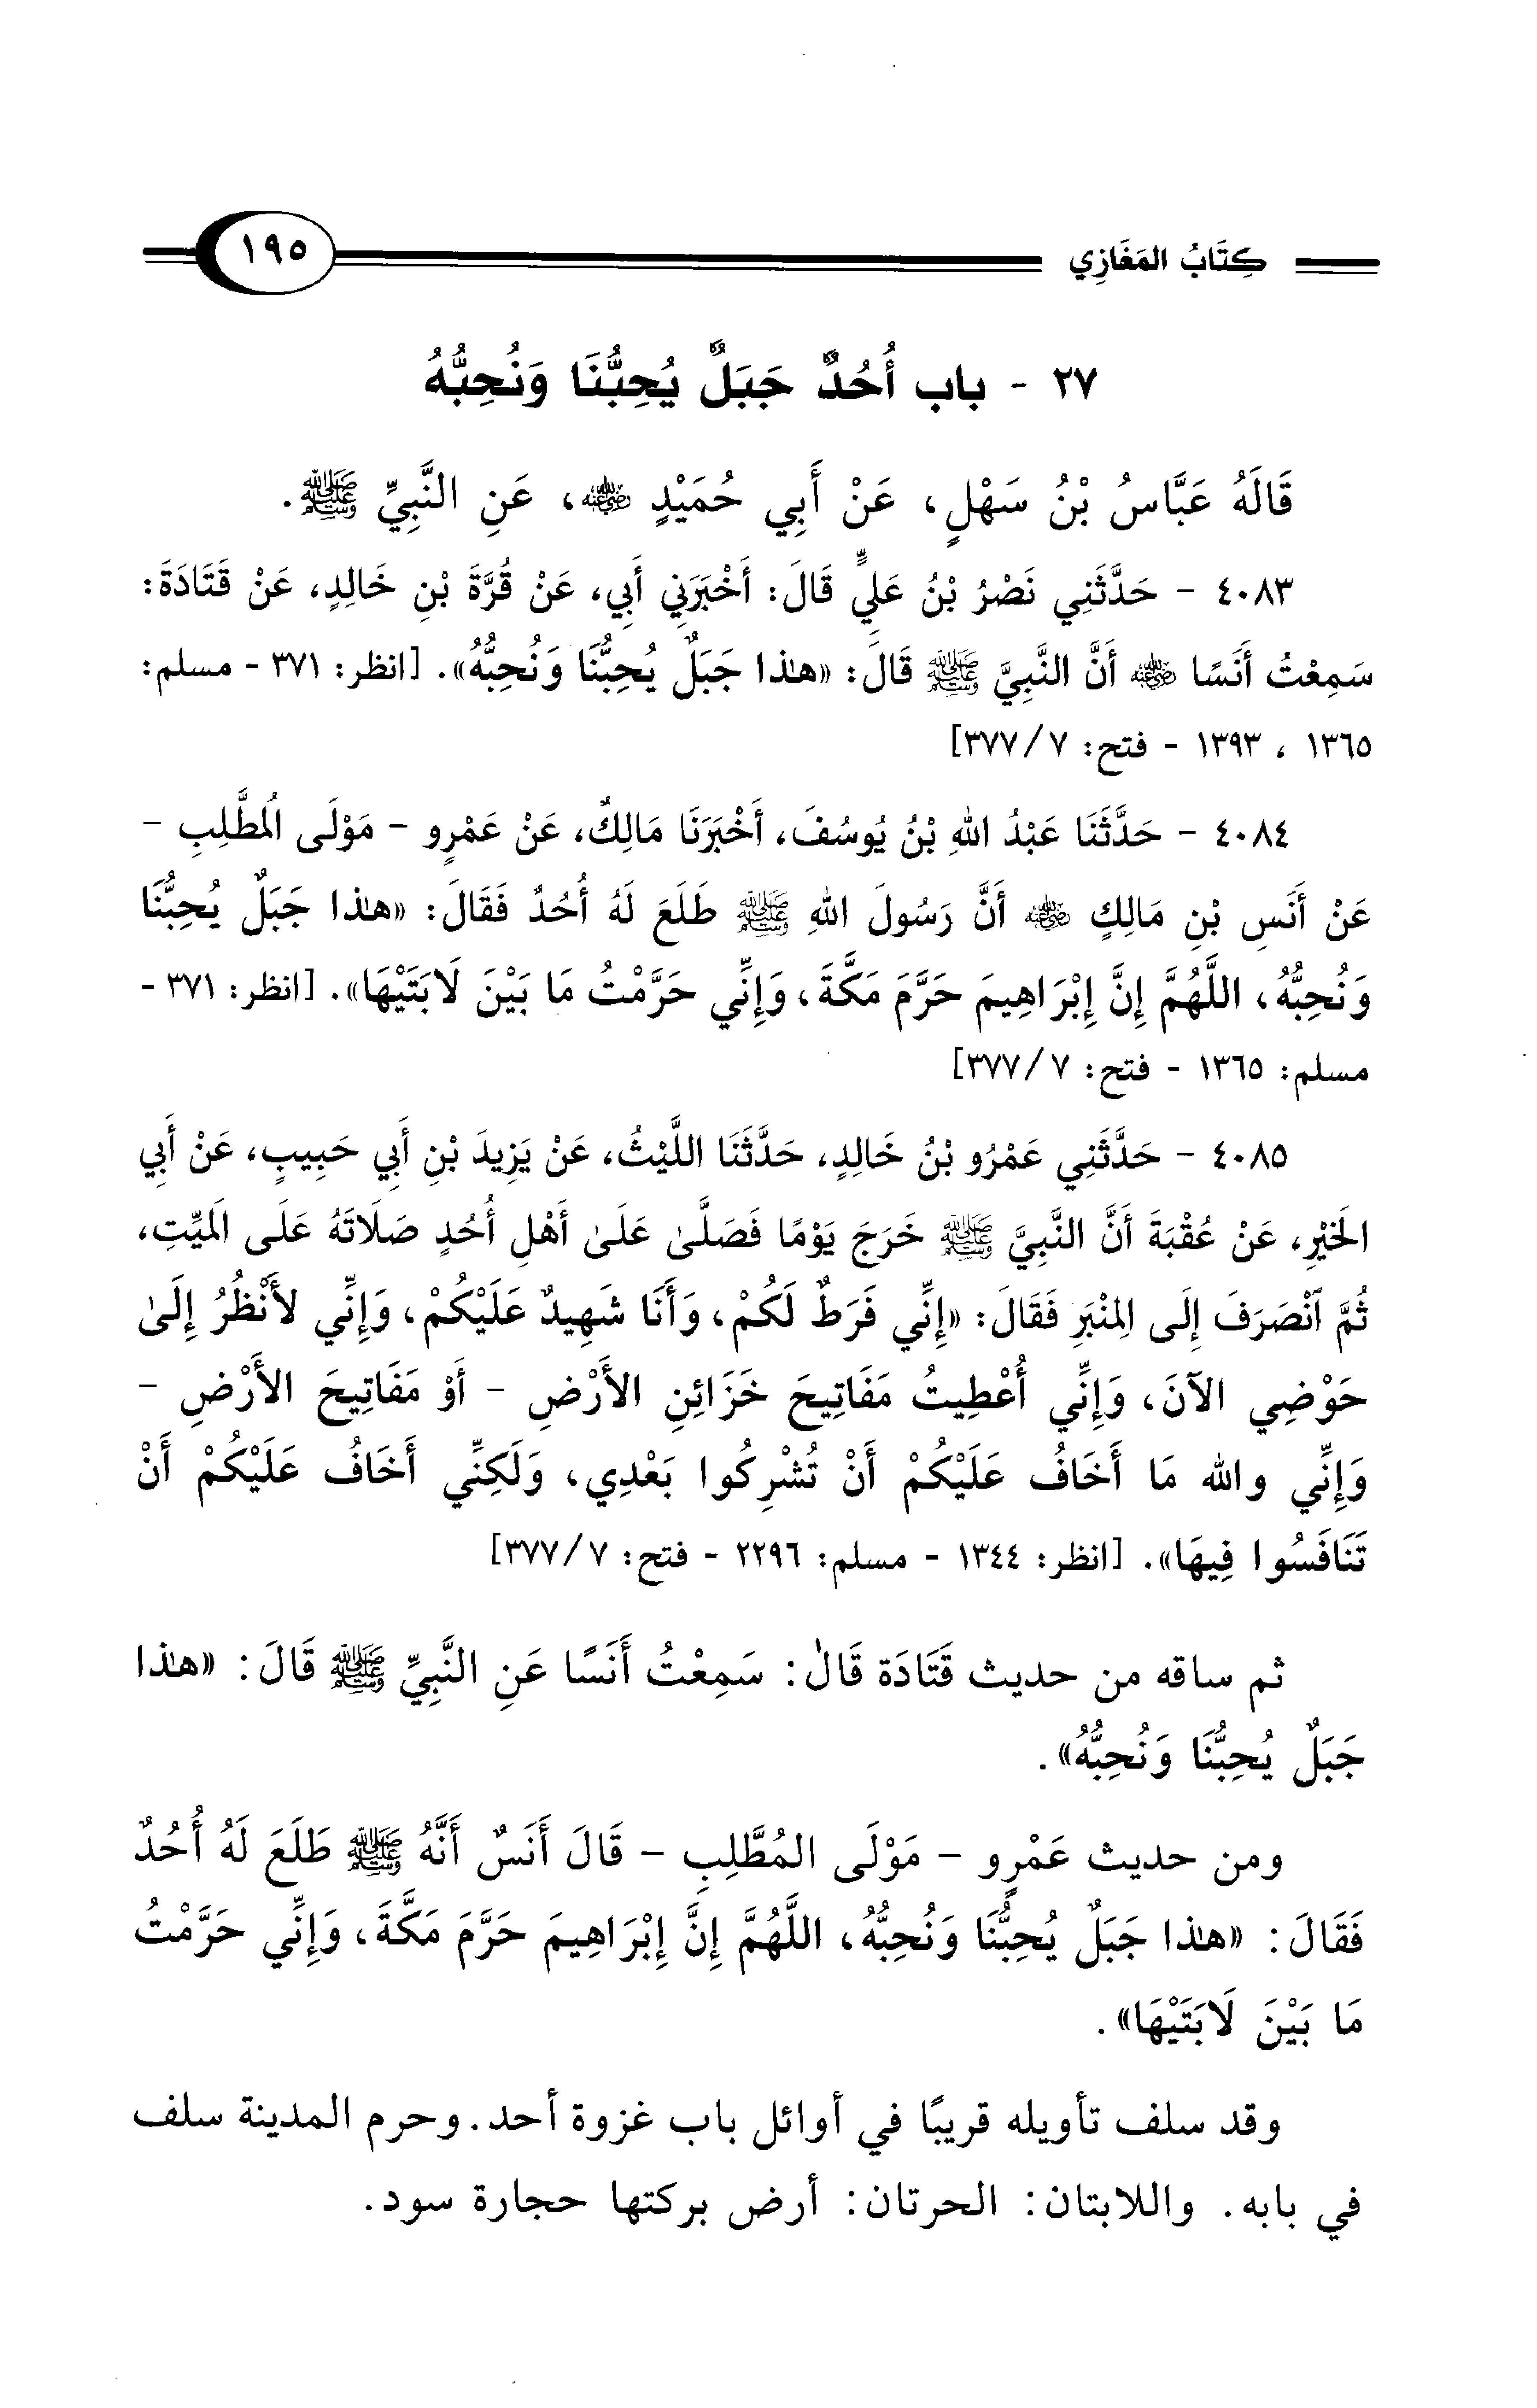 كِتَابُ المَغَازِي
١٩٥
٢٧ - باب أُحُدٌ جَبَلٌ يُحِبُّنَا وَنُحِبُّهُ
قَالَهُ عَبَّاسُ بْنُ سَهْلٍ، عَنْ أَبِي حُمَيْدٍ رضي الله عنه، عَنِ النَّبِيِّ ﷺ.
٤٠٨٣ - حَدَّثَنِي نَصْرُ بْنُ عَلِيٍّ قَالَ: أَخْبَرَنِي أَبِي، عَنْ قُرَّةَ بْنِ خَالِدٍ، عَنْ قَتَادَةَ:
سَمِعْتُ أَنَسًا رضي الله عنه أَنَّ النَّبِيَّ ﷺ قَالَ: «هذا جَبَلٌ يُحِبُّنَا وَنُحِبُّهُ». [انظر: ٣٧١ - مسلم:
١٣٦٥ ، ١٣٩٣ - فتح: ٧/ ٣٧٧]
٤٠٨٤ - حَدَّثَنَا عَبْدُ اللهِ بْنُ يُوسُفَ، أَخْبَرَنَا مَالِكٌ، عَنْ عَمْرٍو - مَوْلَى الُمطَّلِبِ -
عَنْ أَنَسِ بْنِ مَالِكٍ رضي الله عنه أَنَّ رَسُولَ اللهِ ﷺ طَلَعَ لَهُ أُحُدٌ فَقَالَ: «هذا جَبَلٌ يُحِبُّنَا
وَنُحِبُّهُ، اللَّهُمَّ إِنَّ إِبْرَاهِيمَ حَرَّمَ مَكَّةَ، وَإِنِّي حَرَّمْتُ مَا بَيْنَ لَابَتَيْهَا». [انظر: ٣٧١ -
مسلم: ١٣٦٥ - فتح: ٧/ ٣٧٧]
٤٠٨٥ - حَدَّثَنِي عَمْرُو بْنُ خَالِدٍ، حَدَّثَنَا اللَّيْثُ، عَنْ يَزِيدَ بْنِ أَبِي حَبِيبٍ، عَنْ أَبِي
الَخيْرِ، عَنْ عُقْبَةَ أَنَّ النَّبِيَّ ﷺ خَرَجَ يَوْمًا فَصَلَّىٰ عَلَىٰ أَهْلِ أُحُدٍ صَلَاتَهُ عَلَى الَميِّتِ،
ثُمَّ ٱنْصَرَفَ إِلَى الِمنْبَرِ فَقَالَ: «إِنِّي فَرَطٌ لَكُمْ، وَأَنَا شَهِيدٌ عَلَيْكُمْ، وَإِنِّي لأَنْظُرُ إِلَىٰ
حَوْضِي الآنَ، وَإِنِّي أُعْطِيتُ مَفَاتِيحَ خَزَائِنِ الأَرْضِ - أَوْ مَفَاتِيحَ الأَرْضِ -
وَإِنِّي والله مَا أَخَافُ عَلَيْكُمْ أَنْ تُشْرِكُوا بَعْدِي، وَلَكِنِّي أَخَافُ عَلَيْكُمْ أَنْ
تَنَافَسُوا فِيهَا». [انظر: ١٣٤٤ - مسلم: ٢٢٩٦ - فتح: ٧/ ٣٧٧]
ثم ساقه من حديث قَتَادَة قَالَ: سَمِعْتُ أَنَسًا عَنِ النَّبِيِّ ﷺ قَالَ: «هذا
جَبَلٌ يُحِبُّنَا وَنُحِبُّهُ».
ومن حديث عَمْرٍو - مَوْلَى المُطَّلِبِ - قَالَ أَنَسٌ أَنَّهُ ﷺ طَلَعَ لَهُ أُحُدٌ
فَقَالَ: «هذا جَبَلٌ يُحِبُّنَا وَنُحِبُّهُ، اللَّهُمَّ إِنَّ إِبْرَاهِيمَ حَرَّمَ مَكَّةَ، وَإِنِّي حَرَّمْتُ
مَا بَيْنَ لَابَتَيْهَا».
وقد سلف تأويله قريبًا في أوائل باب غزوة أحد. وحرم المدينة سلف
في بابه. واللابتان: الحرتان: أرض بركتها حجارة سود.